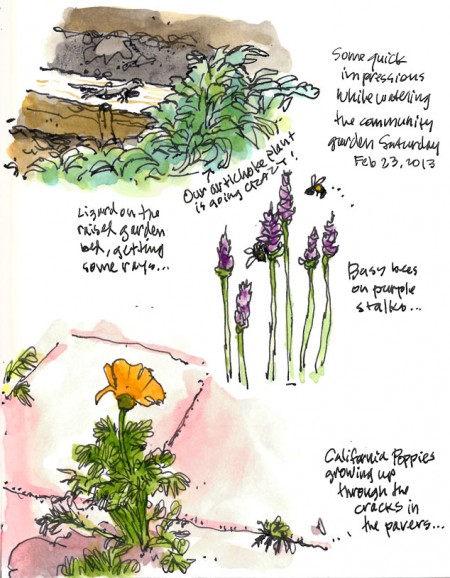 Some quick
impressions
while watering
the community
garden Saturday
Feb 23, 2013
Our artichoke plant
is going crazy!
Lizard on the
raised garden
bed, getting
some rays...
Busy bees
on purple
stalks...
California Poppies
growing up
through the
cracks in
the pavers...